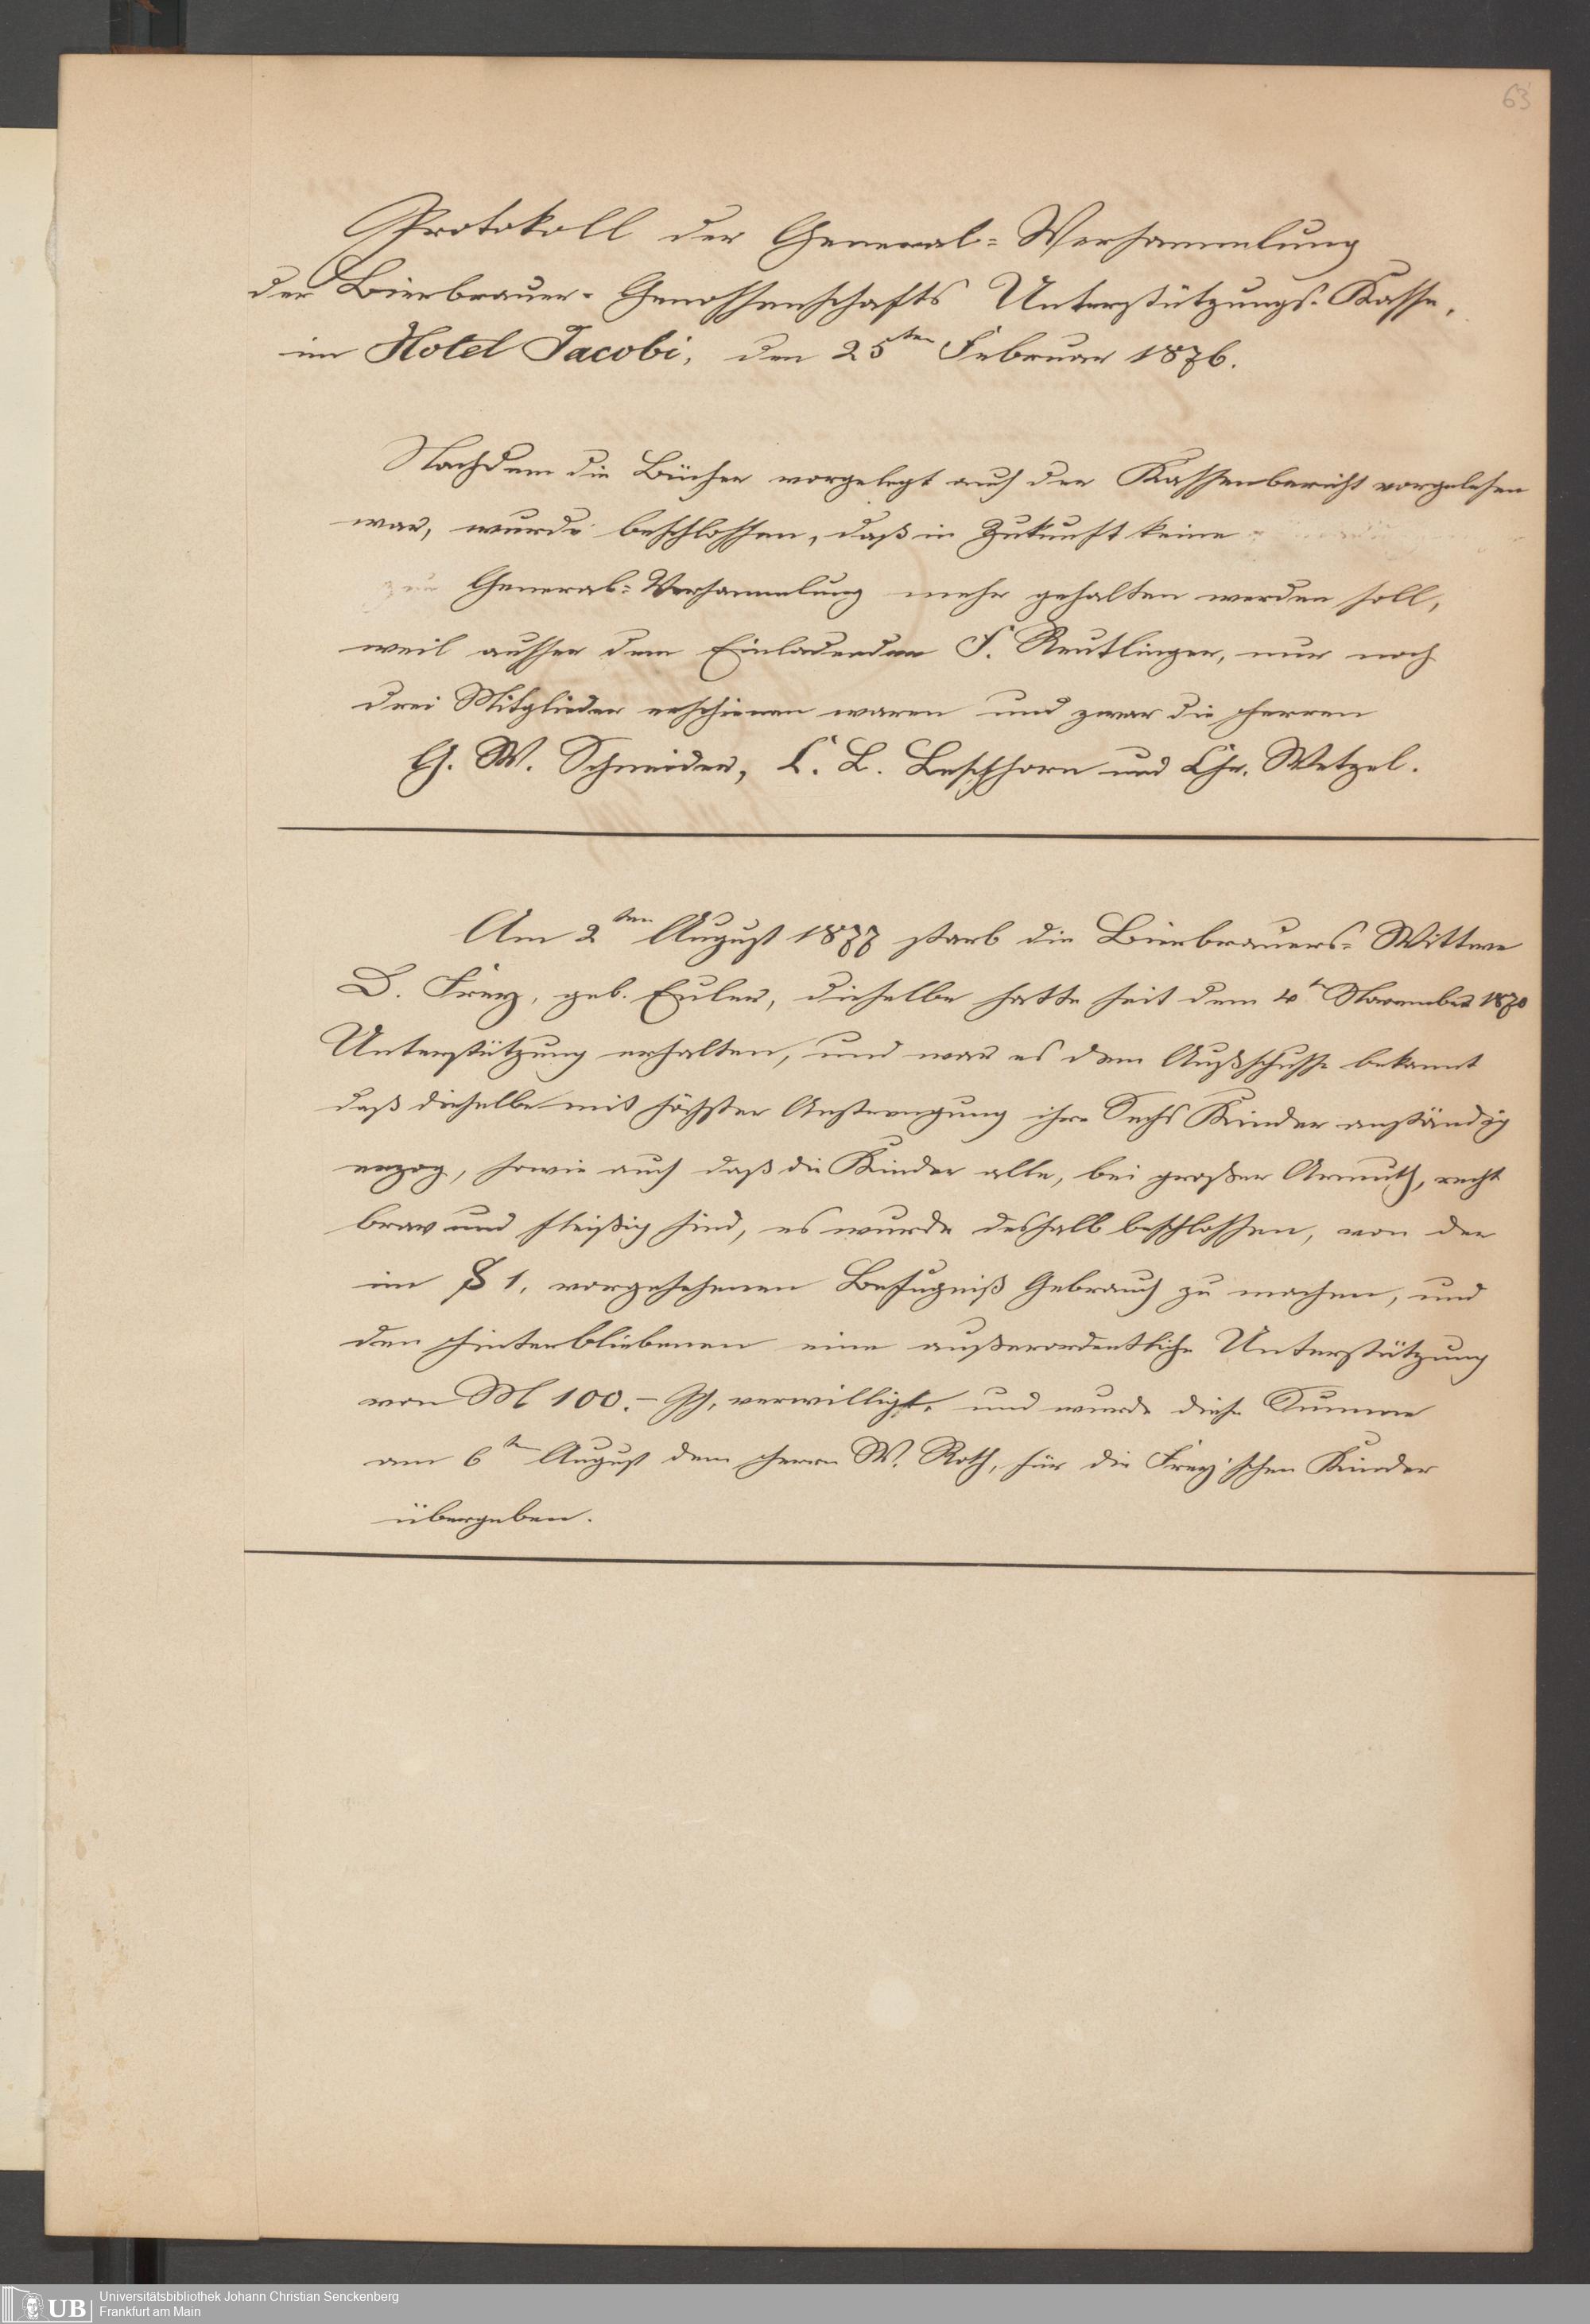 63
Protokoll der General-Versammlung
der Bierbrauer-Genossenschafts Unterstützungs-Kasse,
im Hotel Jacobi, den 25ten Februar 1876.
Nachdem die Bücher vorgelegt auch der Kassenbericht vorgelesen
war, wurde beschlossen, daß in Zukunft keine
General-Versammlung mehr gehalten werden soll,
weil ausser dem Einladenden F. Reutlinger, nur noch
drei Mitglieder erschienen waren und zwar die Herren
G. W. Schneider, C. L. Beschhorn und Chr. Wetzel.
Am 2ten August 1877 starb die Bierbrauers-Wittwe
D. Frey, geb. Euler, dieselbe hatte seit dem 4ten November 1870
Unterstützung erhalten, und war es dem Außschusse bekannt
daß dieselbe mit höchster Anstrengung ihre Sechs Kinder anständig
erzog, sowie auch daß die Kinder alle, bei großer Armuth, recht
brav und fleißig sind, es wurde deshalb beschlossen, von der
im § 1. vorgesehenen Befugniß Gebrauch zu machen, und
den Hinterbliebenen eine außerordentliche Unterstützung
von M 100.- verwilligt, und wurde diese Summe
am 6ten August dem Herrn W. Roth, für die Frey'schen Kinder
übergeben.
UB
Universitätsbibliothek Johann Christian Senckenberg
Frankfurt am Main